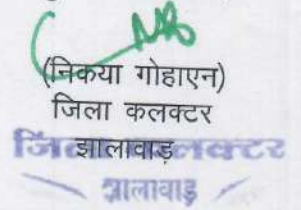 (निकया गोहाएन)
जिला कलक्टर
झालावाड़
जिला कलक्टर
झालावाड़